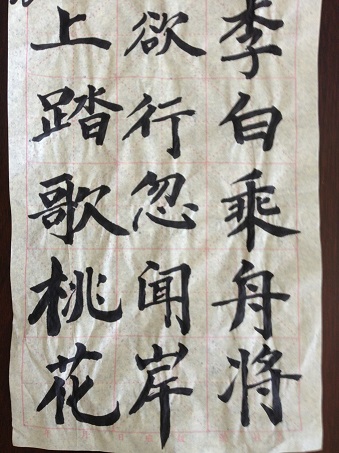 李白乘舟将
欲行忽闻岸
上踏歌桃花